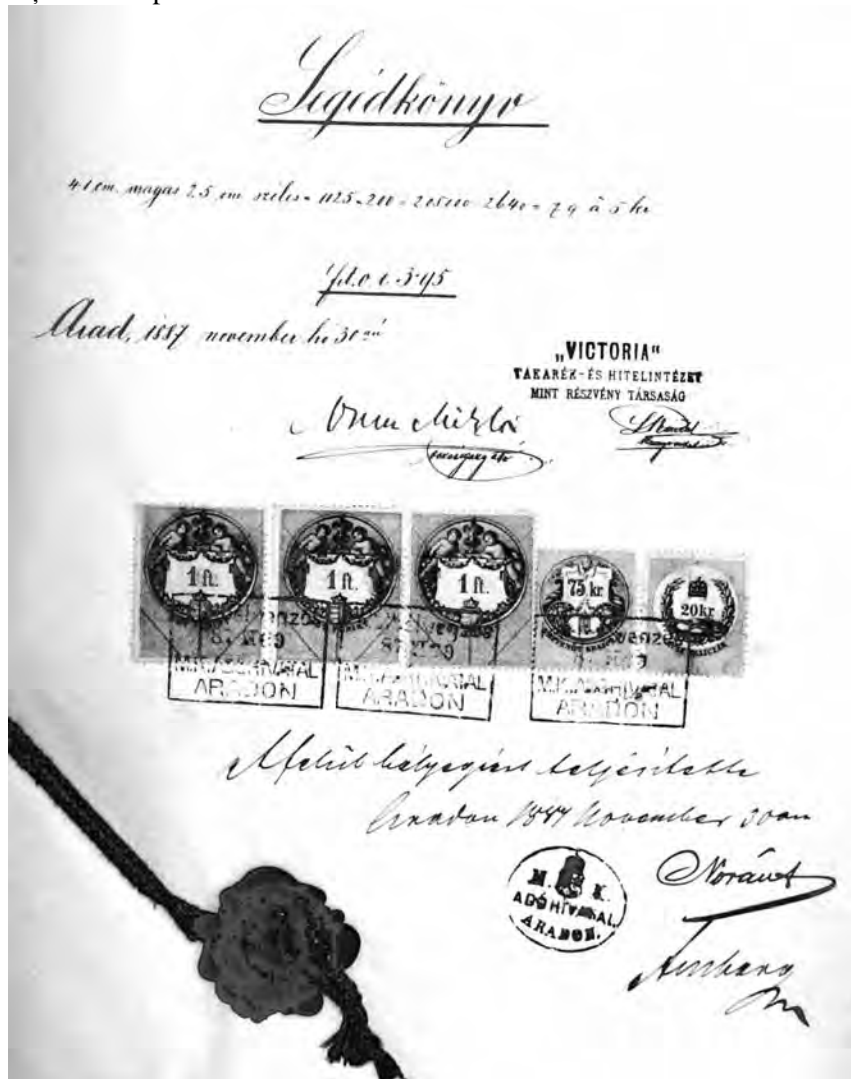 Segédkönyv
41 cm. magas 25 cm széles = 1125 × 200 = 205000 2640 = 79 à 5 kr
3·95
Arad, 1887 november hó 30án
„VICTORIA“
TAKARÉK-ÉS HITELINTÉZET
MINT RÉSZVÉNY TÁRSASÁG
Miklós
1 ft. 1 ft. 1 ft. 75 kr. 20 kr
M.K.ADÓHIVATAL M.K.ADÓHIVATAL M.K.ADÓHIVATAL
ARADON ARADON ARADON
A felül bélyegzést teljesítette
Aradon 1887 November 30án
M. K.
ADÓHIVATAL
ARADON.